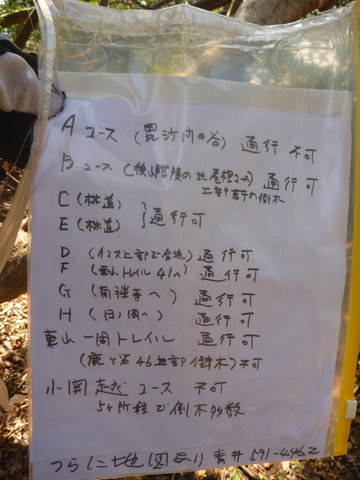 A コース (毘沙門の谷) 通行 不可
B コース (後山階陵の北尾根コース) 通行可
上部若干の倒木
C (林道)
E (林道) } 通行可
D (Aコース上部で合流) 通行可
F (東山トレイル 41へ) 通行可
G (南禅寺へ) 通行可
H (日ノ岡へ) 通行可
東山一周トレイル 通行可
(鹿ヶ谷46上部 倒木) 不可
小関越えコース 不可
5ヶ所程で倒木多数
地図あり 青井 591-4462